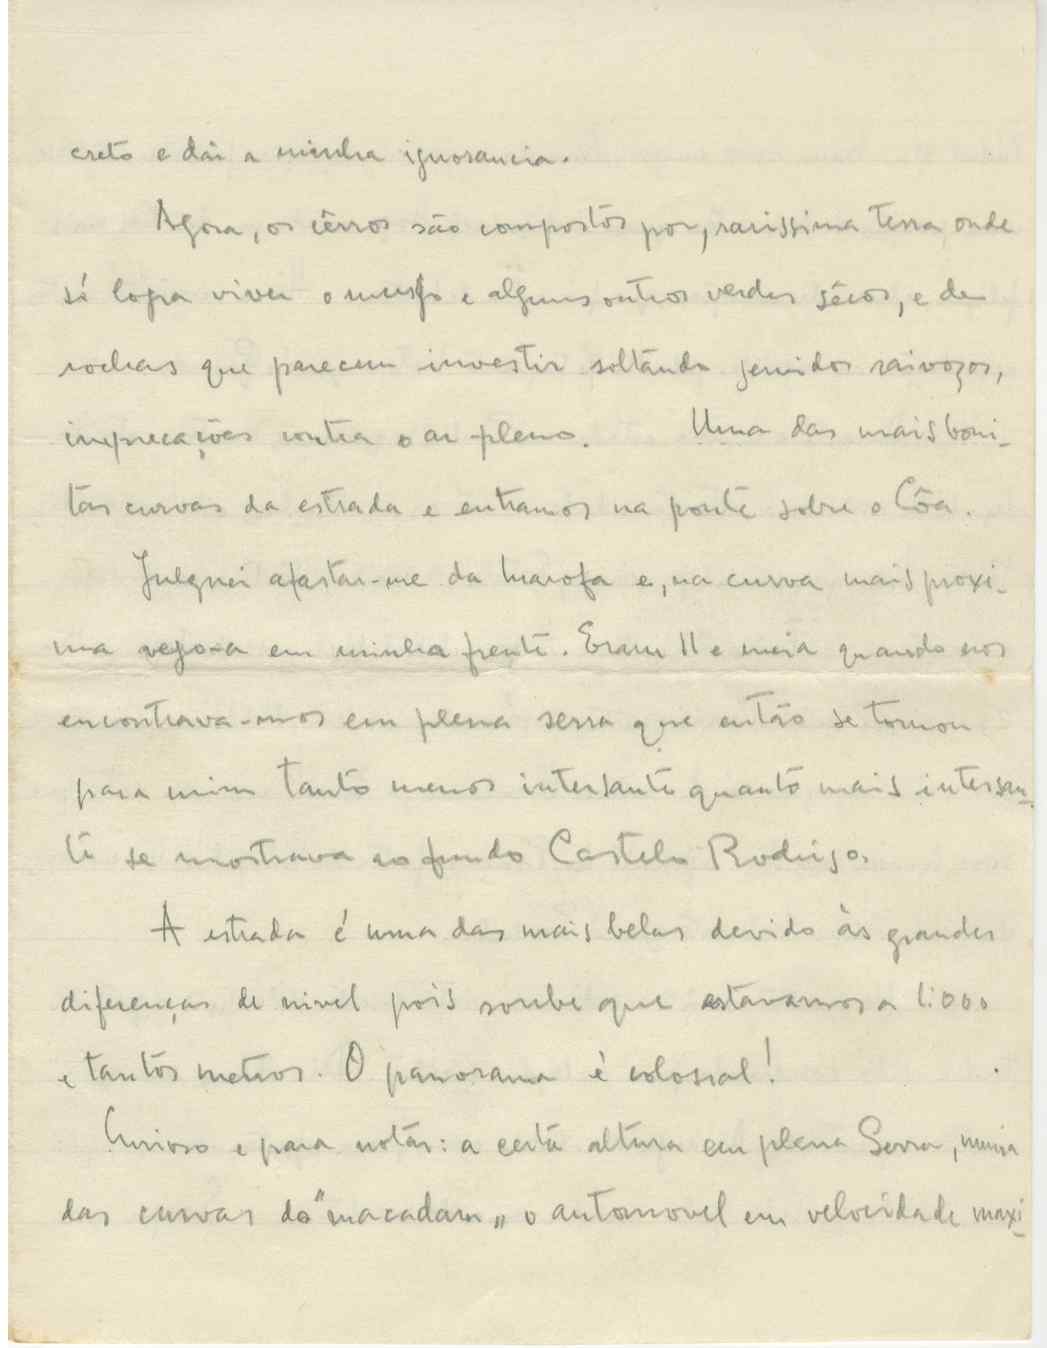 creto e daí a minha ignorancia.
Agora, os cêrros são compostos por, raríssima terra onde
só logra viver o musgo e alguns outros verdes sêcos, e de
rochas que parecem investir soltando gemidos raivozos,
imprecações contra o ar pleno. Uma das mais boni-
tas curvas da estrada e entramos na ponte sobre o Côa.
Julguei afastar-me da Marofa e, na curva mais proxi-
ma vejo-a em minha frente. Eram 11 e meia quando nos
encontrava-mos em plena serra que então se tornou
para mim tanto menos intersante quanto mais intersan-
te se mostrava ao fundo Castelo Rodrigo.
A estrada é uma das mais belas devido às grandes
diferenças de nivel pois soube que estavamos a 1:000
e tantos metros. O panorama é colossal!
Curioso e para notar: a certa altura em plena Serra, numa
das curvas do "macadam„ o automovel em velocidade maxi-